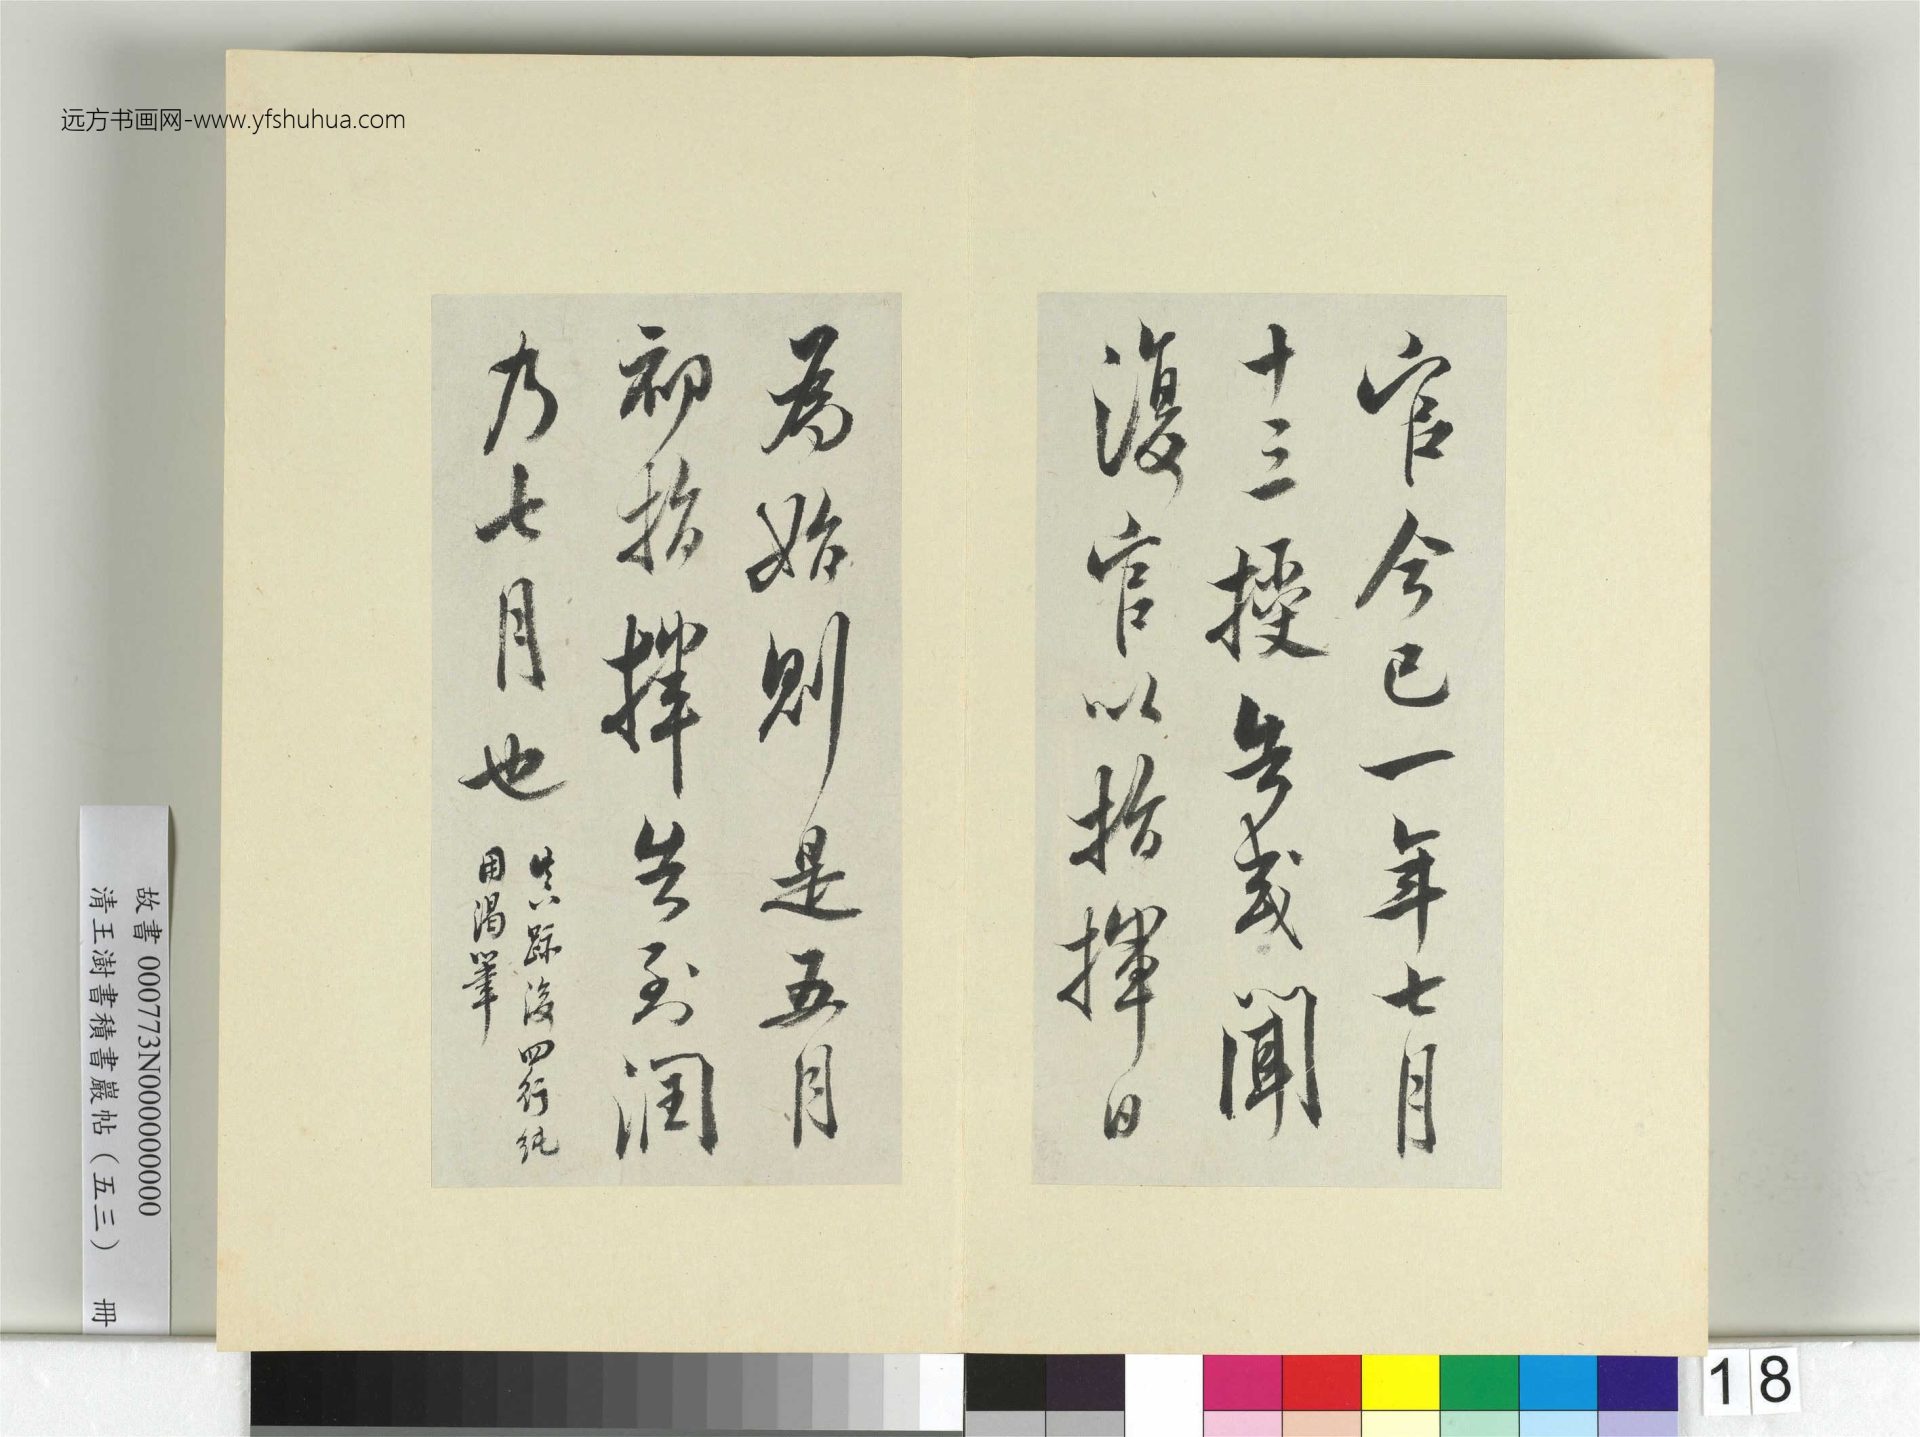 远方书画网-www.yfshuhua.com
官今已一年七月
十三授告或聞
復官以指揮日
為始則是五月
初指揮告到潤
乃七月也
真跡後四行純
用渴筆
故書 000773N000000000
清王澍書積書巖帖（五三） 冊
18